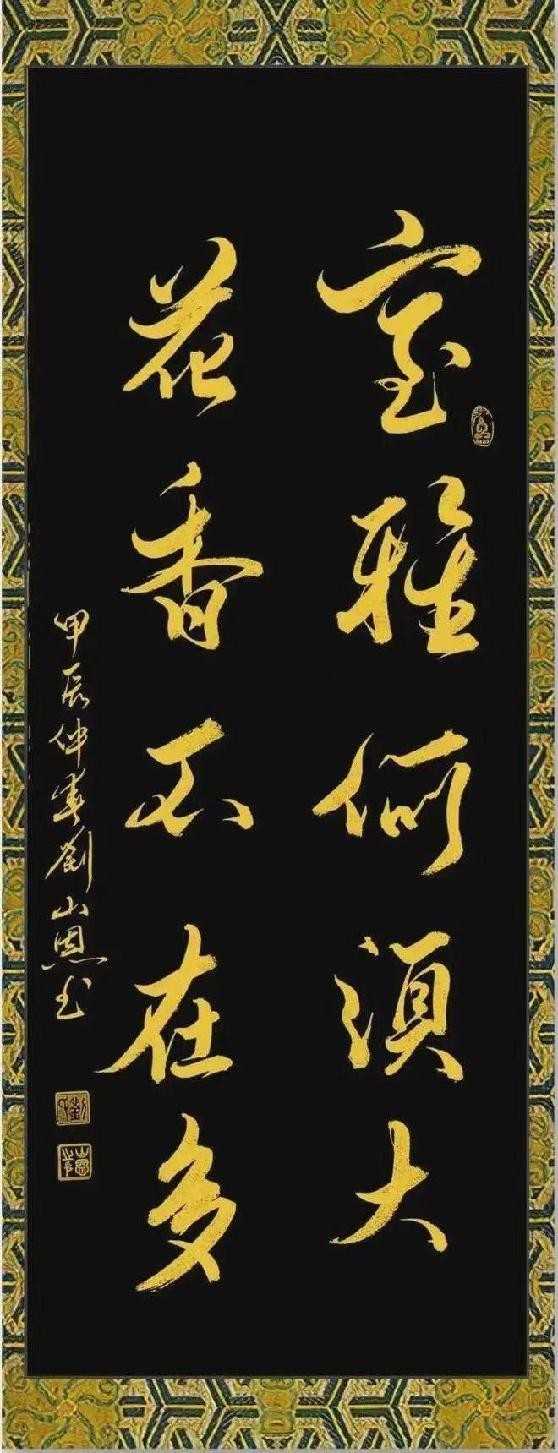 室雅何須大
花香不在多
甲辰仲春劉山恩书